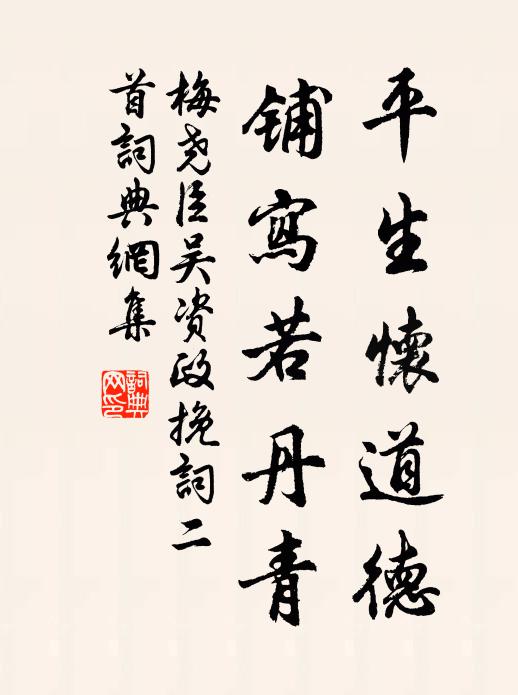 平生懷道德
铺寫若丹青
梅尧臣吴资政挽詞二
首詞典網集
詞典
网印